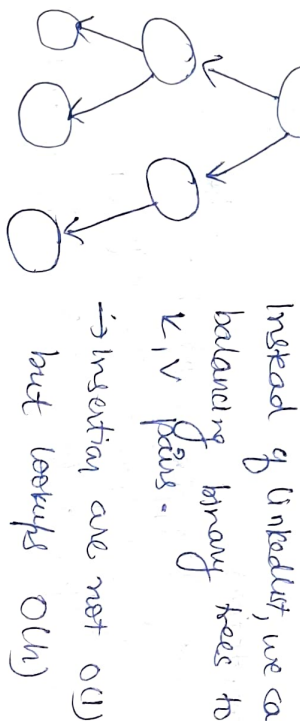 Instead of linkedlist, we ca
balancing binary trees to
K,V pairs.
→ Insertion are not O(1)
but lookups O(h)